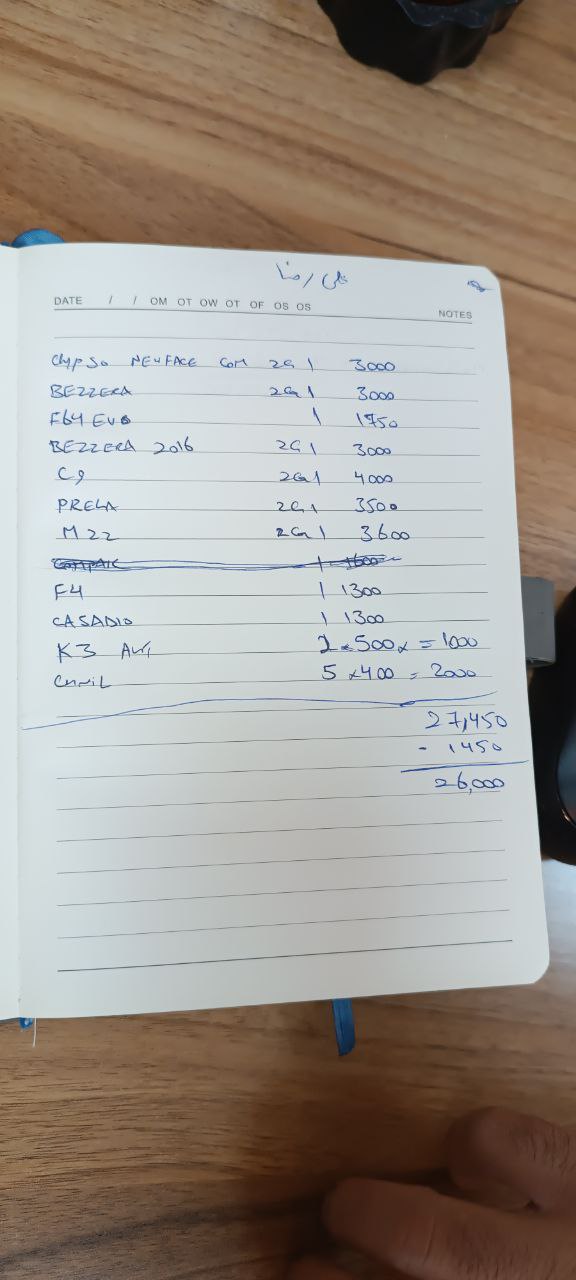 علی رضا
DATE / / OM OT OW OT OF OS OS NOTES
Clypso NEWFACE COM 2G 1 3000
BEZZERA 2G 1 3000
F64 EVO 1 1750
BEZZERA 2016 2G 1 3000
C9 2G 1 4000
PRELA 2G 1 3500
M22 2G 1 3600
1 1600
F4 1 1300
CASADIO 1 1300
K3 2 x 500 x = 1000
5 x 400 = 2000
27,450
- 1450
26,000